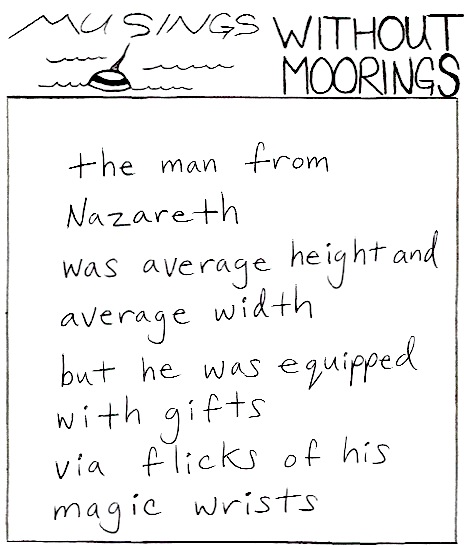 MUSINGS WITHOUT
MOORINGS
the man from
Nazareth
was average height and
average width
but he was equipped
with gifts
via flicks of his
magic wrists